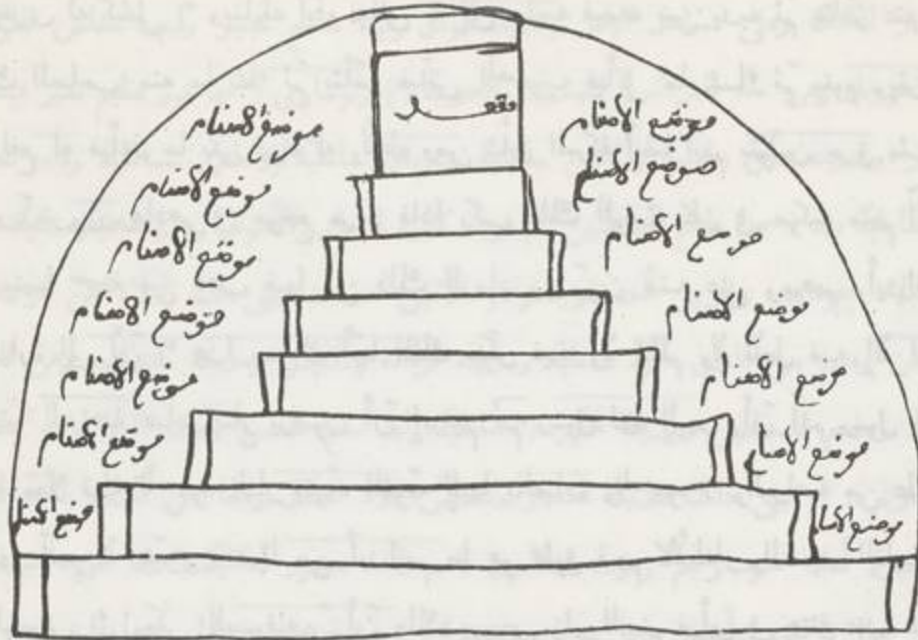 مقعد
موضع الاصنام
موضع الاصنام
موضع الاصنام
موضع الاصنام
موضع الاصنام
موضع الاصنام
موضع الاصنام
موضع الاصنام
موضع الاصنام
موضع الاصنام
موضع الاصنام
موضع الاصنام
موضع الاصنام
موضع